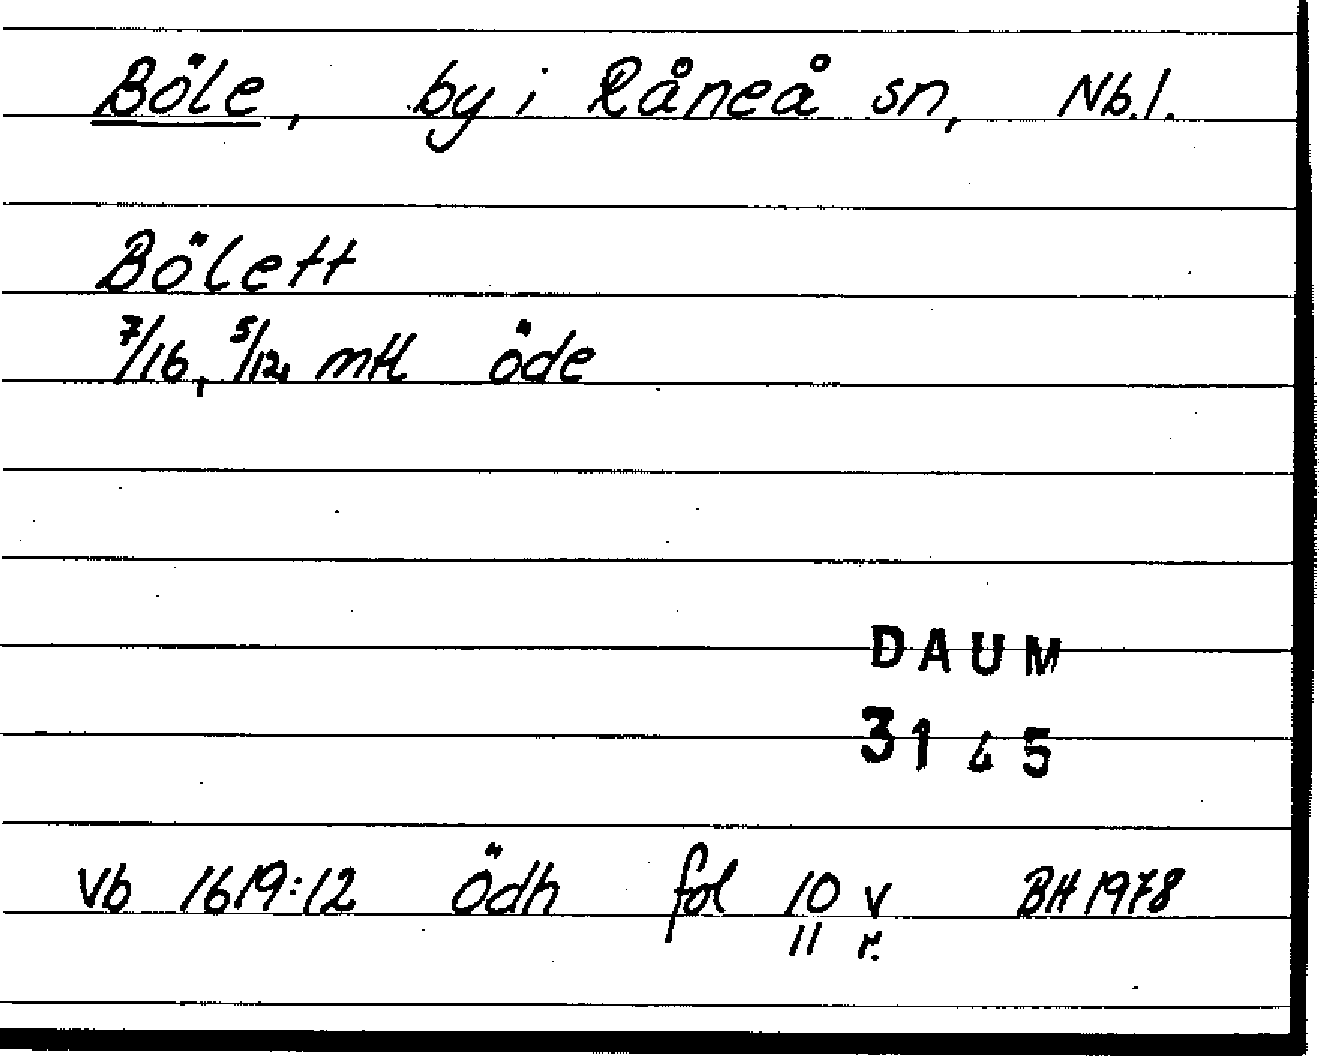 Böle, by i Råneå sn, Nb.l.
Bölett
7/16, 5/12, mtl öde
DAUM
3145
Vb 1619:12 Ödh fol 10 v BH 1978
11 r.